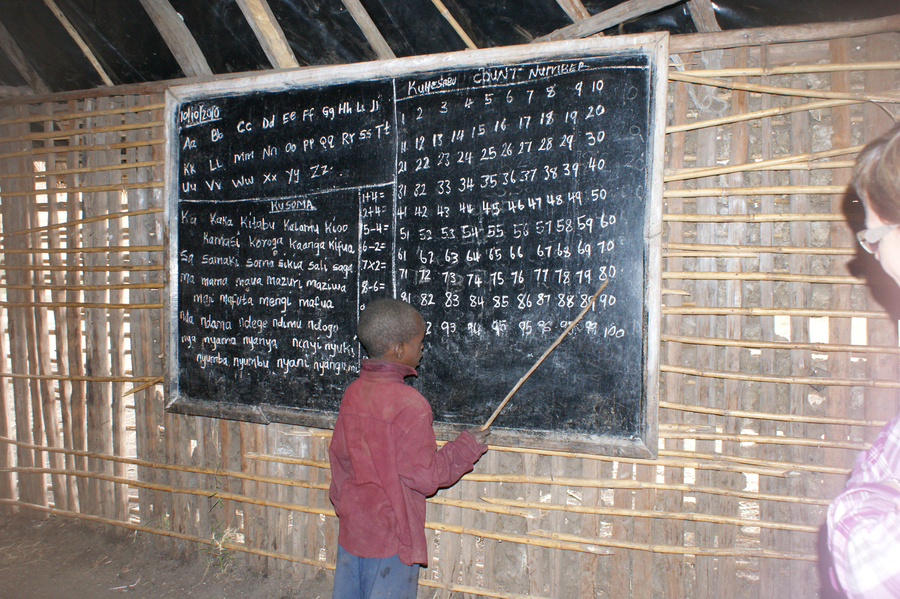 10/10/2010
Aa Bb Cc Dd Ee Ff Gg Hh Ii Jj
Kk LL Mm Nn Oo Pp QQ Rr Ss Tt
Uu Vv Ww Xx Yy Zz..
KUSOMA
Ka Kaka Kitabu Kalamu Kioo
Kamasi Koroga Kaanga Kifua
Sa sainaki soma sikia sali saga
ma mama maua mazuri maziwa
maji mafuta mengi mafua
nda ndama ndege ndimu ndogo
nya nyama nyanya nyuki
nyumba nyumbu nyani
1+4=
2+4=
5-4=
6-2=
7x2=
8-6=
KUHESABU COUNT NUMBER
1 2 3 4 5 6 7 8 9 10
11 12 13 14 15 16 17 18 19 20
21 22 23 24 25 26 27 28 29 30
31 32 33 34 35 36 37 38 39 40
41 42 43 44 45 46 47 48 49 50
51 52 53 54 55 56 57 58 59 60
61 62 63 64 65 66 67 68 69 70
71 72 73 74 75 76 77 78 79 80
81 82 83 84 85 86 87 88 89 90
2 93 94 95 96 98 99 100